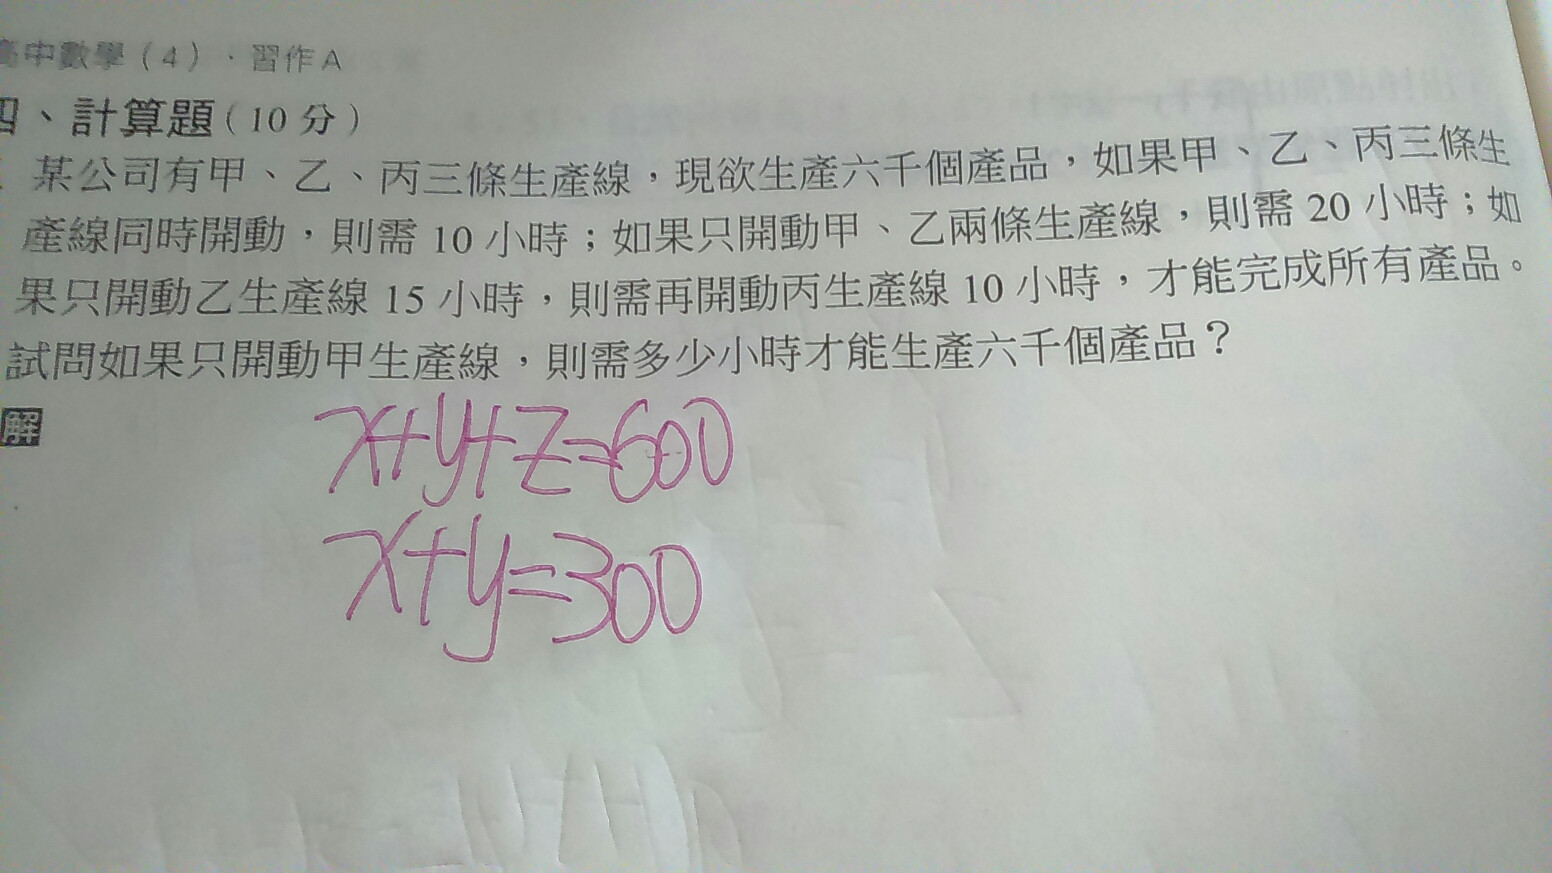 高中數學（4）．習作A
四、計算題（10分）
某公司有甲、乙、丙三條生產線，現欲生產六千個產品，如果甲、乙、丙三條生
產線同時開動，則需 10 小時；如果只開動甲、乙兩條生產線，則需 20 小時；如
果只開動乙生產線 15 小時，則需再開動丙生產線 10 小時，才能完成所有產品。
試問如果只開動甲生產線，則需多少小時才能生產六千個產品？
解
x+y+z=600
x+y=300